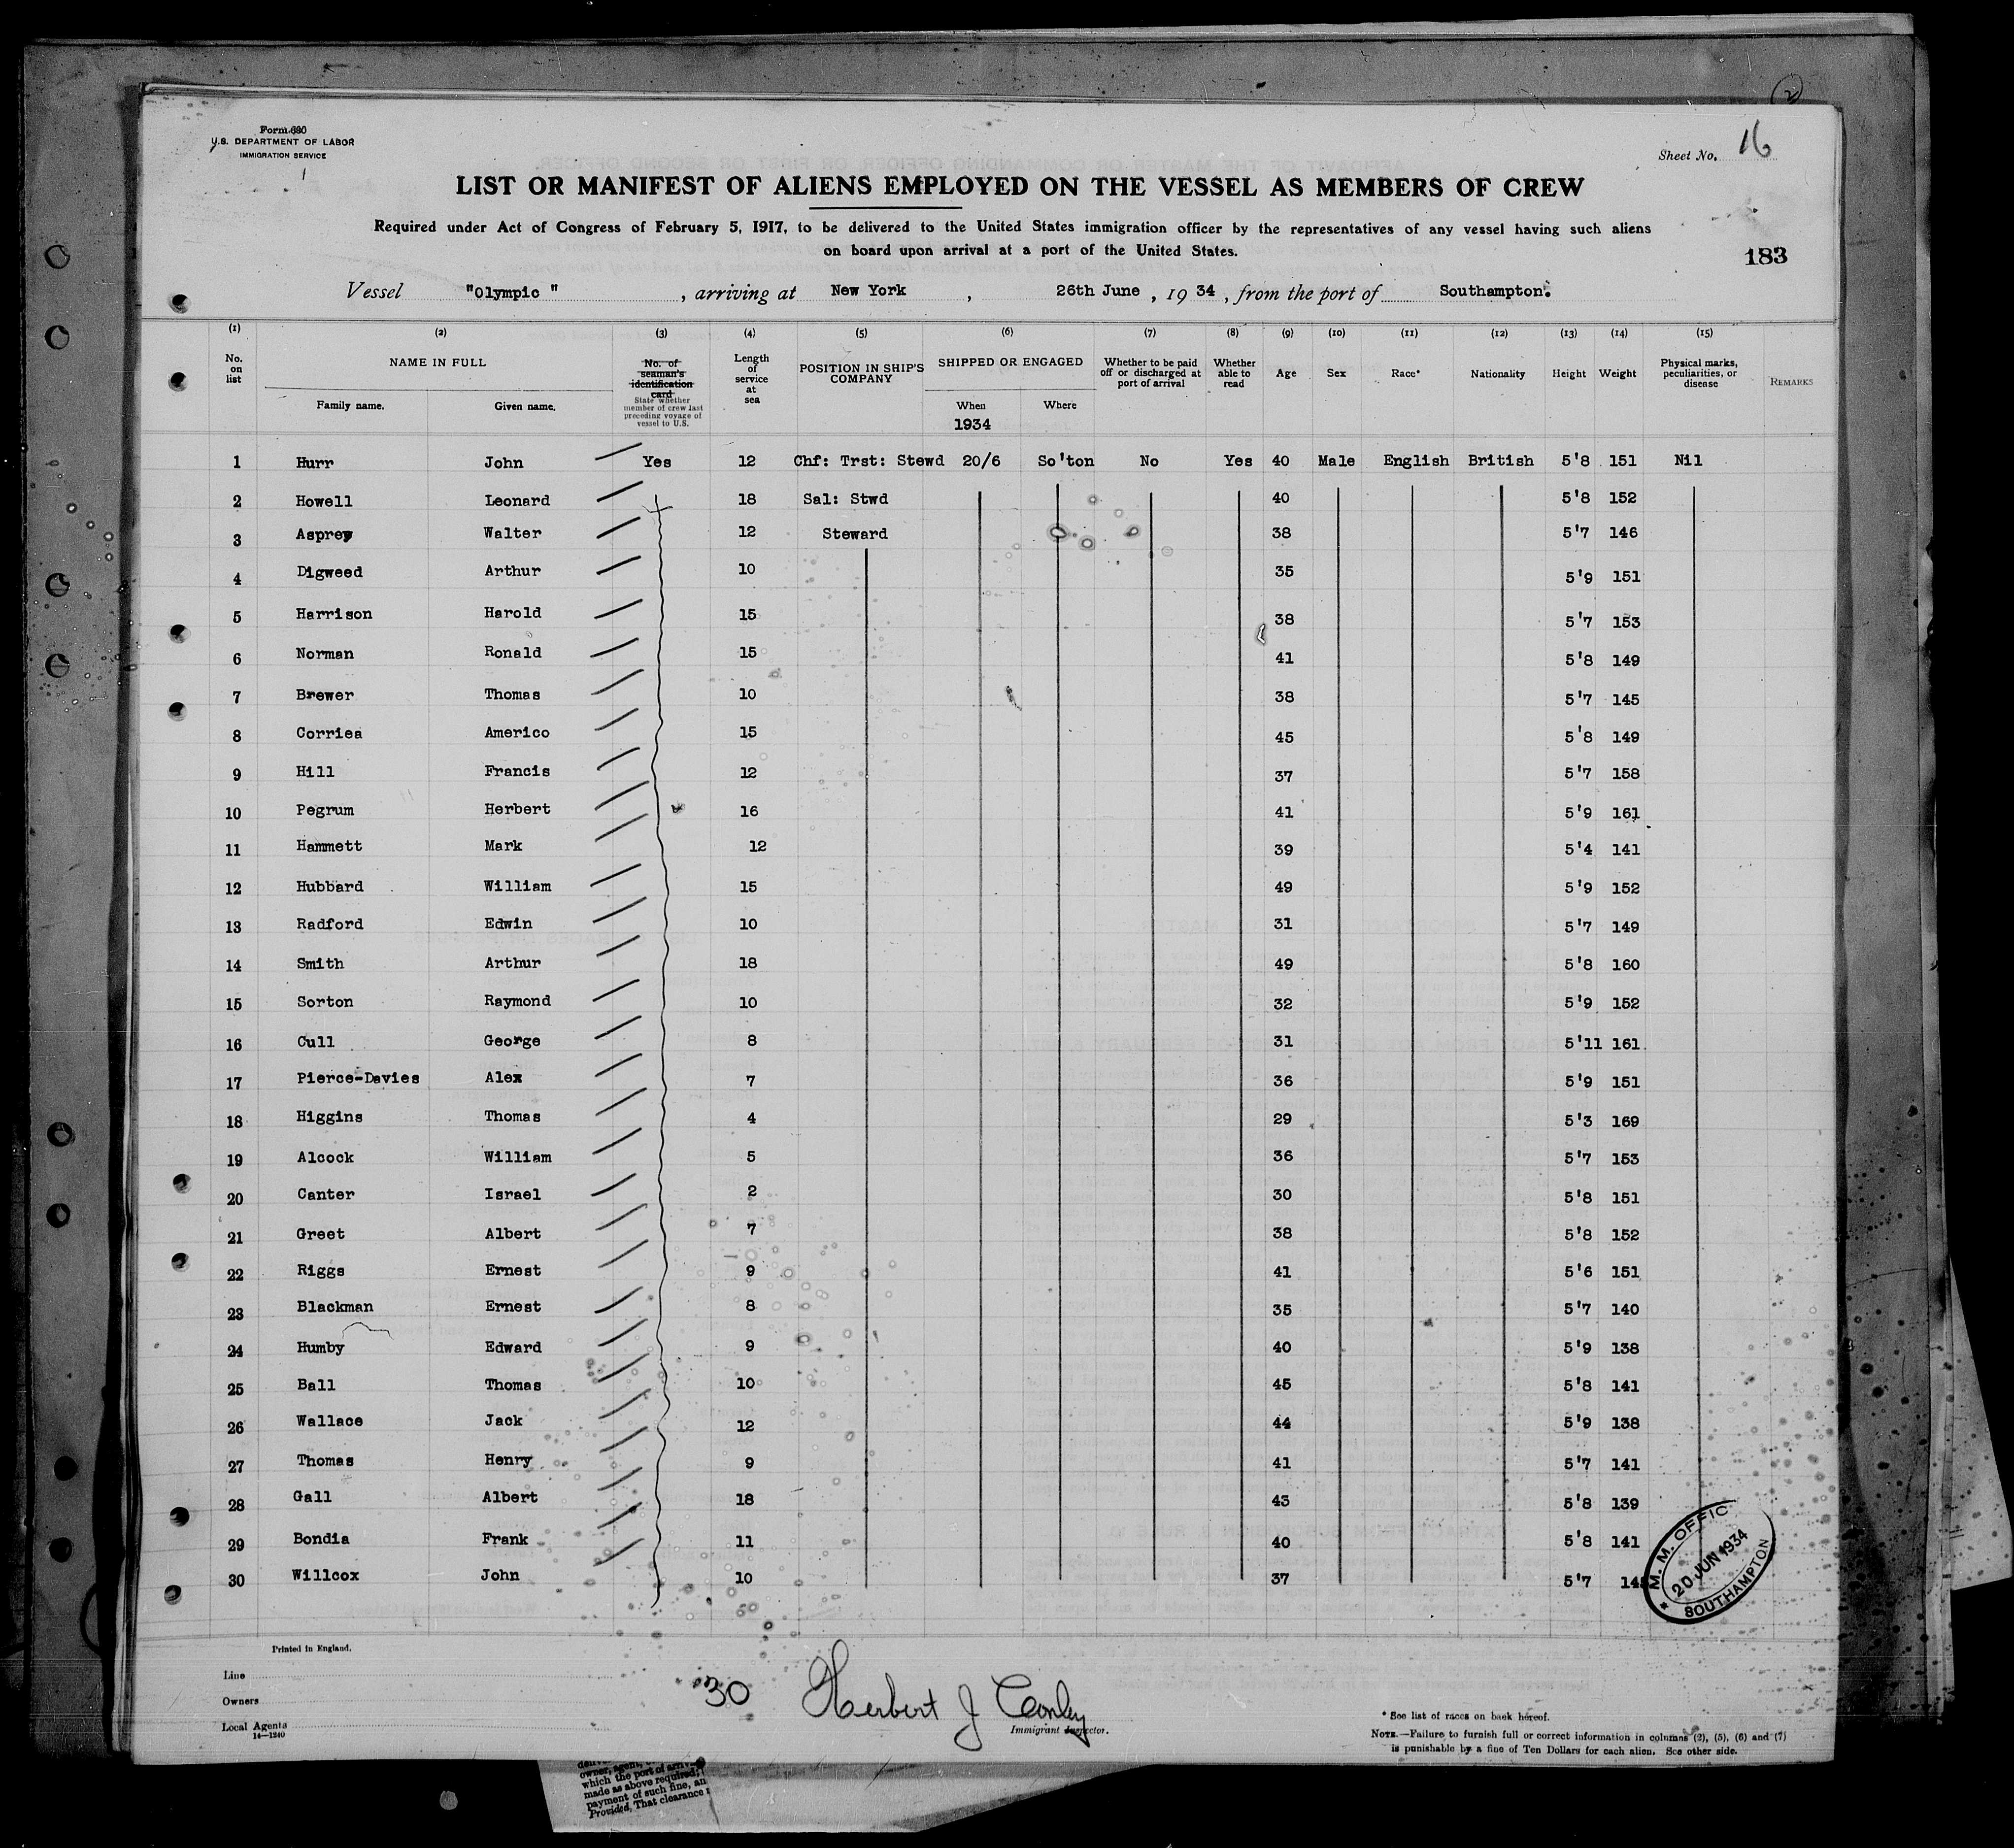 Form 680
U.S. DEPARTMENT OF LABOR
IMMIGRATION SERVICE
Sheet No. 16
LIST OR MANIFEST OF ALIENS EMPLOYED ON THE VESSEL AS MEMBERS OF CREW
Required under Act of Congress of February 5, 1917, to be delivered to the United States immigration officer by the representatives of any vessel having such aliens
on board upon arrival at a port of the United States.
183
Vessel "Olympic" , arriving at New York , 26th June , 19 34 , from the port of Southampton.
(1) (2) (3) (4) (5) (6) (7) (8) (9) (10) (11) (12) (13) (14) (15)
No. on list NAME IN FULL Family name. Given name. No. of seaman's identification card State whether member of crew last preceding voyage of vessel to U.S. Length of service at sea POSITION IN SHIP'S COMPANY SHIPPED OR ENGAGED When 1934 Where Whether to be paid off or discharged at port of arrival Whether able to read Age Sex Race* Nationality Height Weight Physical marks, peculiarities, or disease REMARKS
1 Hurr John Yes 12 Chf: Trst: Stewd 20/6 So'ton No Yes 40 Male English British 5'8 151 Nil
2 Howell Leonard 18 Sal: Stwd 40 5'8 152
3 Asprey Walter 12 Steward 38 5'7 146
4 Digweed Arthur 10 35 5'9 151
5 Harrison Harold 15 38 5'7 153
6 Norman Ronald 15 41 5'8 149
7 Brewer Thomas 10 38 5'7 145
8 Corriea Americo 15 45 5'8 149
9 Hill Francis 12 37 5'7 158
10 Pegrum Herbert 16 41 5'9 161
11 Hammett Mark 12 39 5'4 141
12 Hubbard William 15 49 5'9 152
13 Radford Edwin 10 31 5'7 149
14 Smith Arthur 18 49 5'8 160
15 Sorton Raymond 10 32 5'9 152
16 Cull George 8 31 5'11 161
17 Pierce-Davies Alex 7 36 5'9 151
18 Higgins Thomas 4 29 5'3 169
19 Alcock William 5 36 5'7 153
20 Canter Israel 2 30 5'8 151
21 Greet Albert 7 38 5'8 152
22 Riggs Ernest 9 41 5'6 151
23 Blackman Ernest 8 35 5'7 140
24 Humby Edward 9 40 5'9 138
25 Ball Thomas 10 45 5'8 141
26 Wallace Jack 12 44 5'9 138
27 Thomas Henry 9 41 5'7 141
28 Gall Albert 18 43 5'8 139
29 Bondia Frank 11 40 5'8 141
30 Willcox John 10 37 5'7
M. M. OFFIC
20 JUN 1934
SOUTHAMPTON
Printed in England.
Line
Owners
Local Agents
14—1240
30
Herbert J Conley
Immigrant Inspector.
* See list of races on back hereof.
NOTE.—Failure to furnish full or correct information in columns (2), (5), (6) and (7)
is punishable by a fine of Ten Dollars for each alien. See other side.
owner, agent,
which the port of arriv
made as above required,
payment of such fine, an
Provided, That clearance